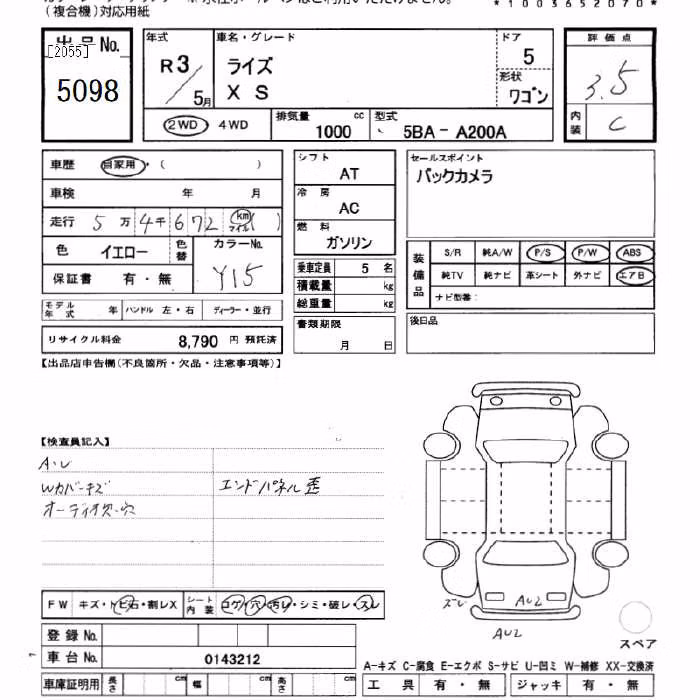 (複合機)対応用紙
*1003652070*
出品No.
[2055]
5098
年式
R3/5月
車名・グレード
ライズ
X S
ドア
5
形状
ワゴン
評価点
3.5
内装
C
2WD・4WD
排気量
1000 cc
型式
5BA- A200A
車歴 自家用・( )
車検 年 月
走行 5万4千672km( )マイル
色 イエロー
色替
カラーNo.
Y15
保証書 有・無
モデル年式 年
ハンドル 左・右
ディーラー・並行
リサイクル料金 8,790 円 預託済
シフト
AT
冷房
AC
燃料
ガソリン
乗車定員 5 名
積載量 kg
総重量 kg
書類期限
月 日
セールスポイント
バックカメラ
装備品
S/R 純A/W P/S P/W ABS
純TV 純ナビ 革シート 外ナビ エアB
ナビ型番:
後日品
【出品店申告欄(不良箇所・欠品・注意事項等)】
【検査員記入】
A・U
Wカバーキズ
オーディオ欠・穴
エンドパネル歪
FW キズ・トビ石・割レX
シート内装 コゲ・穴・汚レ・シミ・破レ・スレ
登録No.
車台No. 0143212
車庫証明用 長さ cm 幅 cm 高さ cm
スレ
AU2
AU2
スペア
A-キズ C-腐食 E-エクボ S-サビ U-凹ミ W-補修 XX-交換済
工具 有・無
ジャッキ 有・無